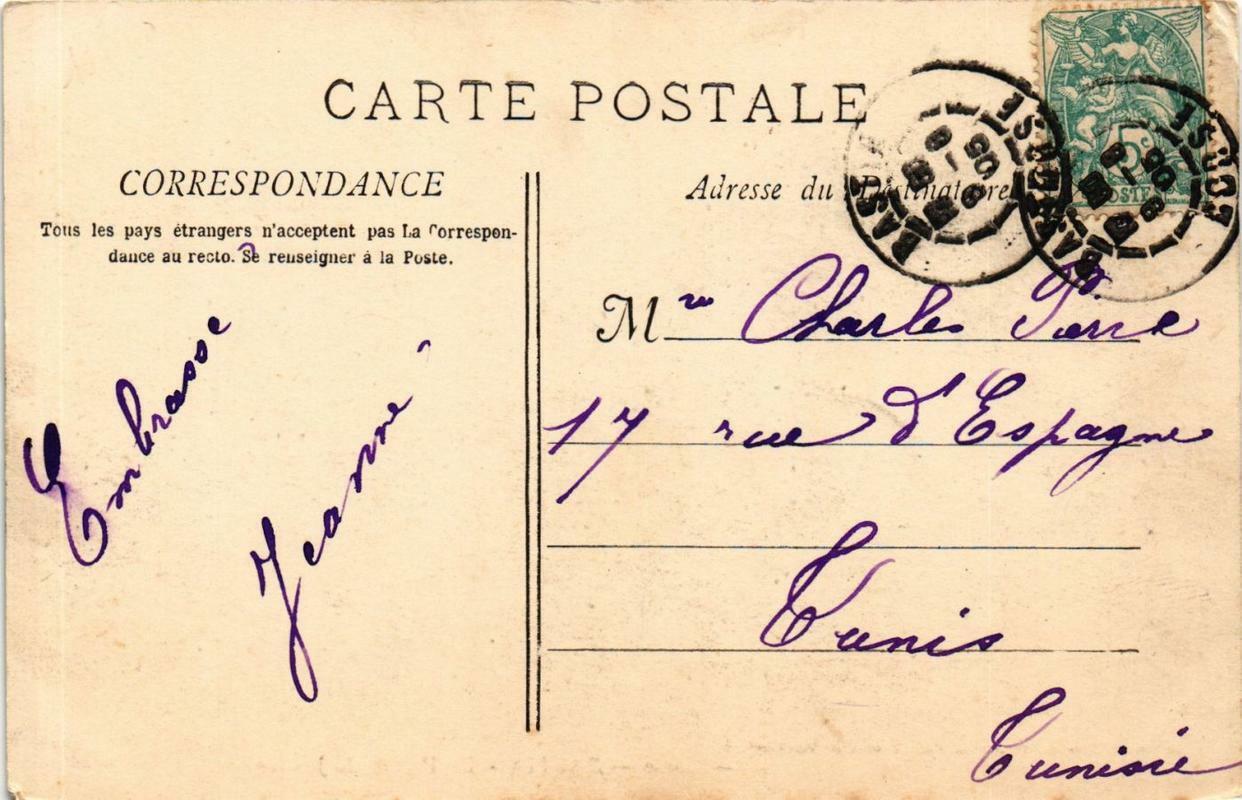 CARTE POSTALE
CORRESPONDANCE
Tous les pays étrangers n'acceptent pas la Correspon-
dance au recto. Se renseigner à la Poste.
Embrasse
Jeanne
Adresse du Destinataire
Mme Charles
17 rue d'Espagne
Tunis
Tunisie
5c
POSTES